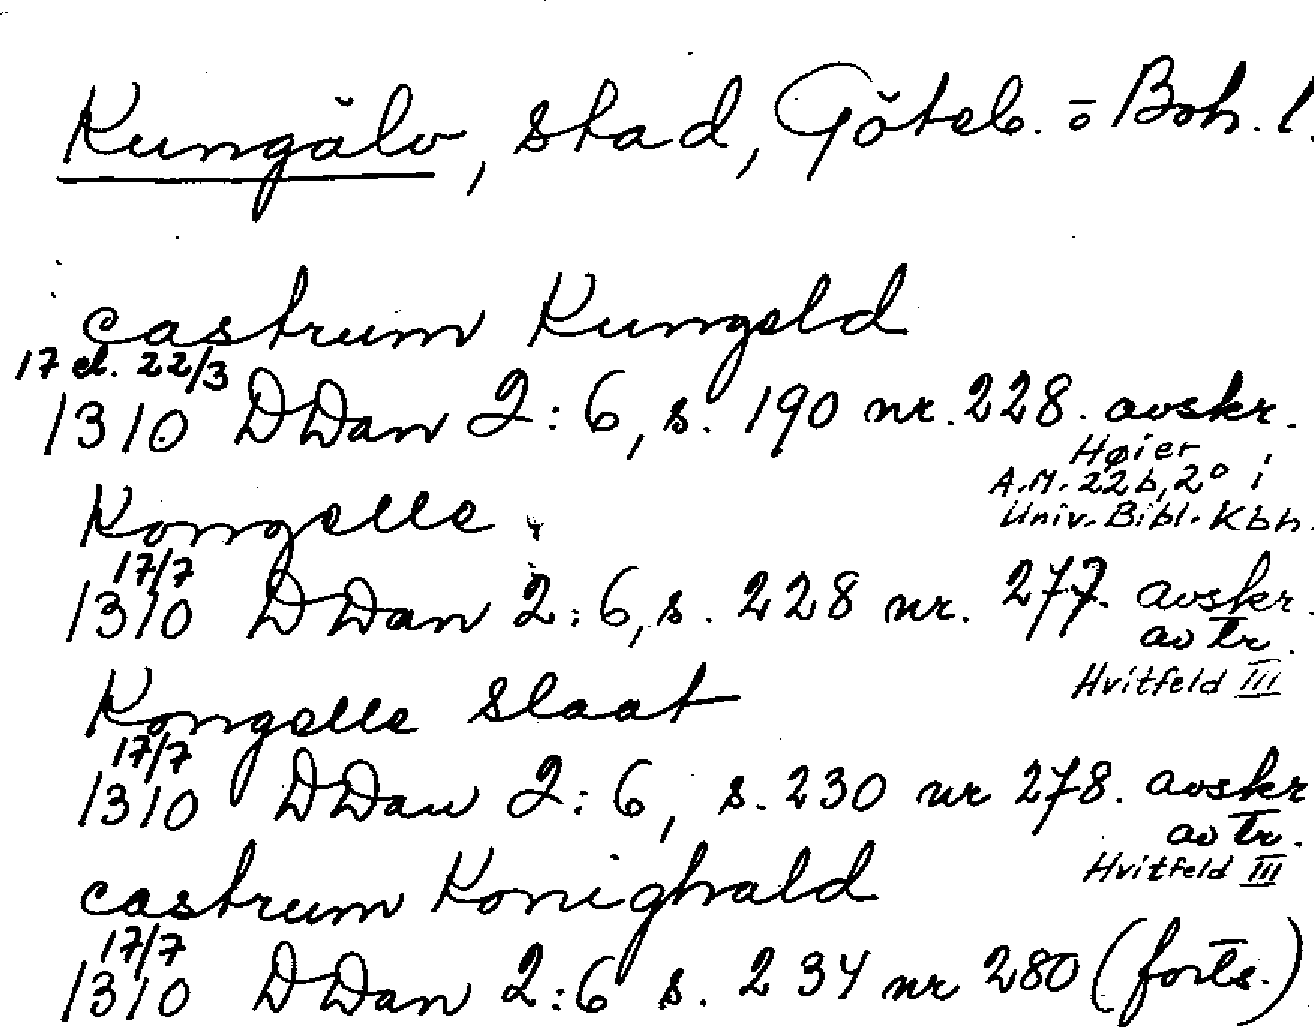 Kungälv, stad, Göteb. o Boh. l.
castrum Kungeld
17 el. 22/3
1310 DDan 2:6, s. 190 nr. 228. avskr.
Høier
A.M. 22b, 2° i
Univ. Bibl. Kbh.
Kongelle
17/7
1310 DDan 2:6, s. 228 nr. 277. avskr.
av tr.
Hvitfeld III
Kongelle Slaat
17/7
1310 DDan 2:6, s. 230 nr 278. avskr
av tr.
Hvitfeld III
castrum Konighald
17/7
1310 DDan 2:6 s. 234 nr 280 (forts.)